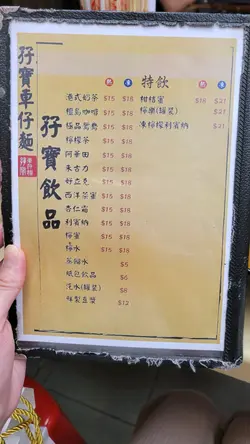 孖寶車仔麵
孖寶飲品
熱 凍
港式奶茶 $15 $18
檀島咖啡 $15 $18
極品鴛鴦 $15 $18
檸檬茶 $15 $18
阿華田 $15 $18
朱古力 $15 $18
好立克 $15 $18
西洋菜蜜 $15 $18
杏仁霜 $15 $18
利賓納 $15 $18
檸蜜 $15 $18
檸水 $15 $18
菜蜜水 $5
紙包飲品 $6
汽水(罐裝) $8
樽裝豆漿 $12
特飲 熱 凍
柑桔蜜 $18 $21
檸樂(罐裝) $21
凍檸檬利賓納 $21